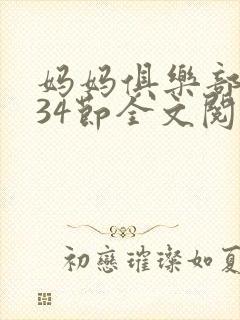 妈妈俱樂部
34節全文閱
初戀璀璨如夏